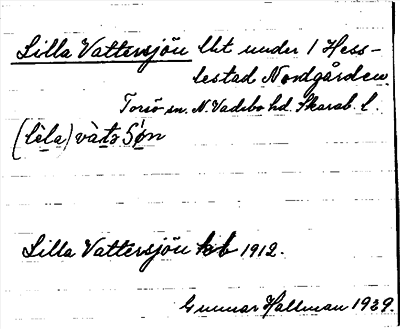 Lilla Vattersjön lht under 1 Hess-
lestad Nordgården
Torsö sn. N. Vadsbo hd. Skarab. l.
(lèla) vàtsSǿn
Lilla Vattersjön kb 1912.
Gunnar Hallman 1939.